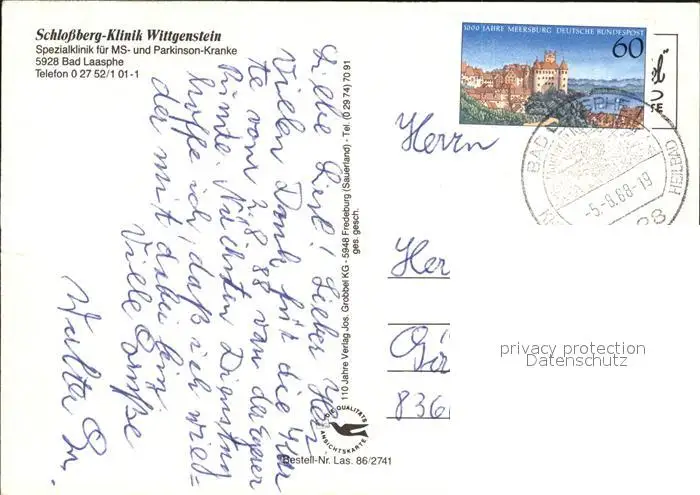 Schloßberg-Klinik Wittgenstein
Spezialklinik für MS- und Parkinson-Kranke
5928 Bad Laasphe
Telefon 0 27 52/1 01-1
Liebe Liesl! Lieber Her
Vielen Dank für die
te vom 2.8.88 von der
Runde. Nächsten Dienstag
hoffe ich, daß ich wied=
der mit dabei bin.
Viele Grüße
Walter
110 Jahre Verlag Jos. Grobbel KG - 5948 Fredeburg (Sauerland) - Tel. (0 29 74) 70 91
ges. gesch.
DIE QUALITÄTS
ANSICHTSKARTE
Bestell-Nr. Las. 86/2741
1000 JAHRE MEERSBURG DEUTSCHE BUNDESPOST
60
BAD LAASPHE
-5.-8.88-19
HEILBAD
Herrn
Her
836
privacy protection
Datenschutz